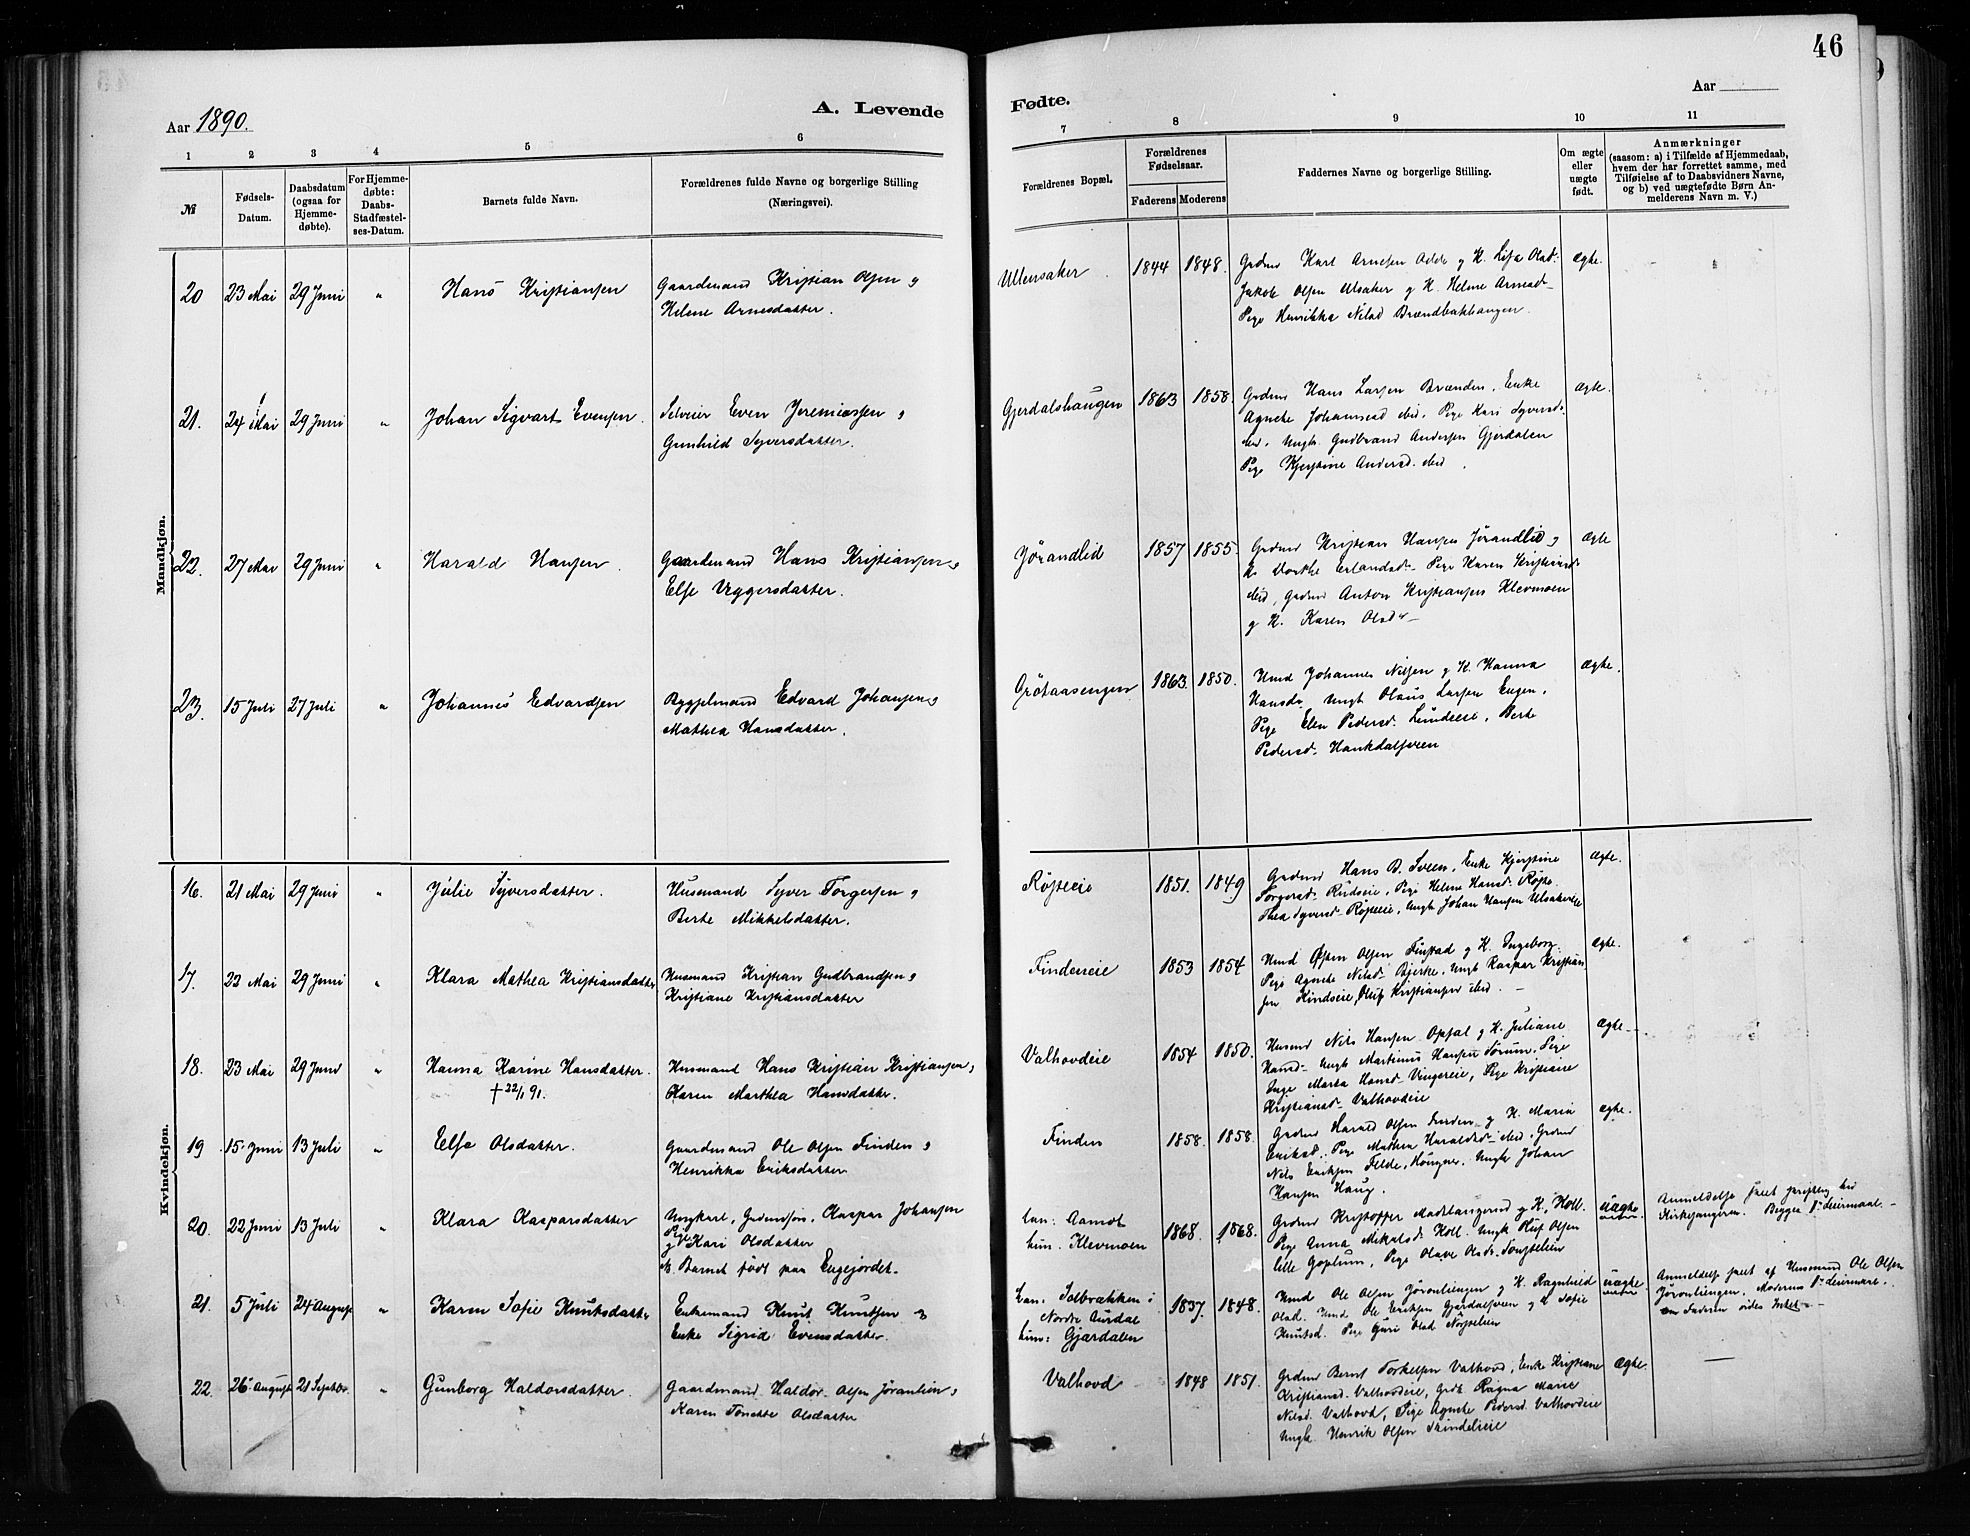 46
Aar 1890.
A. Levende
Fødte.
Aar
1 2 3 4 5 6
7 8 9 10 11
№
Fødsels-
Datum.
Daabsdatum
(ogsaa for
Hjemme-
døbte).
For Hjemme-
døbte:
Daabs-
Stadfæstel-
ses-Datum.
Barnets fulde Navn.
Forældrenes fulde Navne og borgerlige Stilling
(Næringsvei).
Forældrenes Bopæl.
Forældrenes
Fødselsaar.
Faderens Moderens
Faddernes Navne og borgerlige Stilling.
Om ægte
eller
uægte
født.
Anmærkninger
(saasom: a) i Tilfælde af Hjemmedaab,
hvem der har forrettet samme, med
Tilføielse af to Daabsvidners Navne,
og b) ved uægtefødte Børn An-
melderens Navn m. V.)
Mandkjøn.
20 23 Mai 29 Juni " Hans Kristiansen Gaardmand Kristian Olsen og
Helene Arnesdatter.
Ullensaker. 1844 1848. Grdmd Karl Arnesen g K. Olsd. Ægte.
Jakob Olsen Ulsaker g K. Helene Arnesd
Pige Henrikke Nilsd Brændbakhaugen.
21. 24 Mai 29 Juni " Johan Sigvart Evensen. Selveier Even Jeremiassen g
Gunhild Syversdatter.
Gjerdalshaugen 1863 1858. Grdmd Hans Larsen Brænden. Enke Ægte.
Agnethe Johannesd ibid. Pige Kari Syversd.
ibd. Ungk. Gudbrand Andersen Gjerdalen
Pige Kjerstine Andersd. ibid.
22. 27 Mai 29 Juni " Harald Hansen. Gaardmand Hans Kristiansen g
Else Viggersdatter.
Jørandlid 1857 1855. Grdmd Kristian Hansen Jørandlid g Ægte
K. Dorthe Erlandsd. Pige Karen Kristiansd.
ibid, Grdmd Anton Kristiansen Klevmoen
g K. Karen Olsd
23. 15 Juli 27 Juli " Johannes Edvardsen Bygselmand Edvard Johansen g
Mathea Hansdatter.
Grøtaasengen 1863. 1850. Hmd Johannes Nilsen g K. Hanna Ægte.
Hansd, Ungk Olaus Larsen Engen.
Pige Elen Pedersd. Lundseie. Berte
Pedersd. Haukdalsveen
Kvindekjøn.
16. 21 Mai 29 Juni " Julie Syversdatter. Husmand Syver Torgersen g
Berte Mikkelsdatter.
Røjseie 1851. 1849 Grdmd Hans B. Sveen, Enke Kjerstine Ægte.
Torgersd. Rudseie, Pige Helene Hansd.
Thea Syversd. Røjseie, Ungk Johan Hansen Ulsakereie
17. 22 Mai 29 Juni " Klara Mathea Kristiansdatter Husmand Kristian Gudbrandsen g
Kristiane Kristiansdatter
Findeneie 1853 1854 Hmd Østen Olsen Finstad g K. Ingeborg. Ægte.
Pige Agnethe Nilsd. Bjerke, Ungk Kaspar Kristian
sen Kindseie, Kristiansen ibid.
18. 23 Mai 29 Juni " Hanna Karine Hansdatter. Husmand Hans Kristian Kristiansen g
† 22/1 91. Karen Marthea Hansdatter.
Valhovdeie 1854 1850. Husmd Nils Hansen Opsal g K. Juliane Ægte
Hansd. Ungk Martinus Hansen Sørum. Pige
Inge Marta Hansd. Vingereie, Pige Kristiane
Kristiansd. Valhovdeie
19 15 Juni 13 Juli " Else Olsdatter. Gaardmand Ole Olsen Finden g
Henrikka Eriksdatter
Finden 1858. 1858. Grdmd Harald Olsen Finden g K. Maria Ægte.
Eriksd. Pige Mathea Haraldsd. ibid. Grdmd
Nils Eriksen Felde, . Ungk Johan
Hansen Haug.
20. 22 Juni 13 Juli " Klara Kasparsdatter Ungkarl, Grdmdsøn, Kaspar Johansen
g Pige Kari Olsdatter
N. Barnet født paa Engejordet.
han: Aamot 1868. 1868. Grdmd Kristoffer g K. Uægte
hun: Klevmoen Pige Anna Mikalsd. Ungk Olsen
lille Goplum, Pige Olave Olsd.
Anmeldelse skeet skriftlig ved
Kirkesangeren. Begges 1ste Leiermaal.
21. 5 Juli 24 August " Karen Sofie Knutsdatter Enkemand Knut Knutsen g
Enke Sigrid Evensdatter.
han: Solbrækken i 1837. 1848. Hmd Ole Olsen Jøranliengen g K. Ragnhild Uægte
Nordre Aurdal Olsd. Hmd Ole Eriksen Gjerdalsveen g K Sofie
hun: Gjerdalen Knutsd. Pige Guri Olsd
Anmeldelse skeet af Husmand Ole Olsen
Jøranliengen. Moderens 1ste Leiermaal.
om Faderen vides Intet
22 26 August 21 Septbr " Gunborg Haldorsdatter. Gaardmand Haldor Olsen Jøranlien g
Karen Tonette Olsdatter
Valhovd 1848 1851. Grdmd Bernt Torkelsen Valhovd, Enke Kristiane Ægte.
Kristiansd. Valhovdeie, Grdk. Ragna Marie
Nilsd. Valhovd, Pige Agnethe Pedersd. Valhovdeie
Ungk. Henrik Olsen